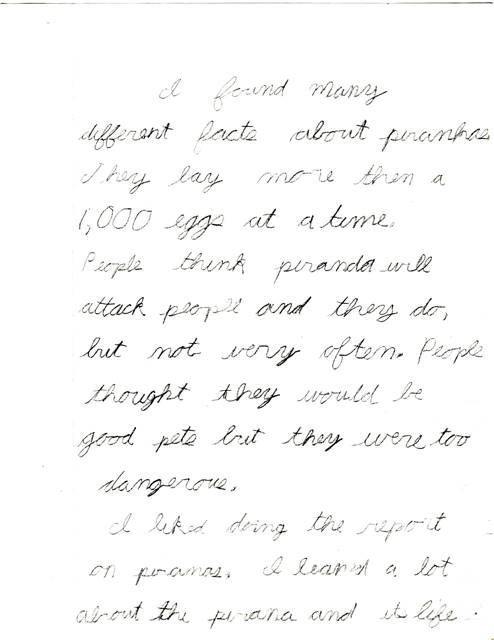 I found many
different facts about piranhas
They lay more then a
1,000 eggs at a time.
People think piranda will
attack people and they do,
but not very often. People
thought they would be
good pets but they were too
dangerous.
I liked doing the report
on piranas. I leaned a lot
about the pirana and it life.